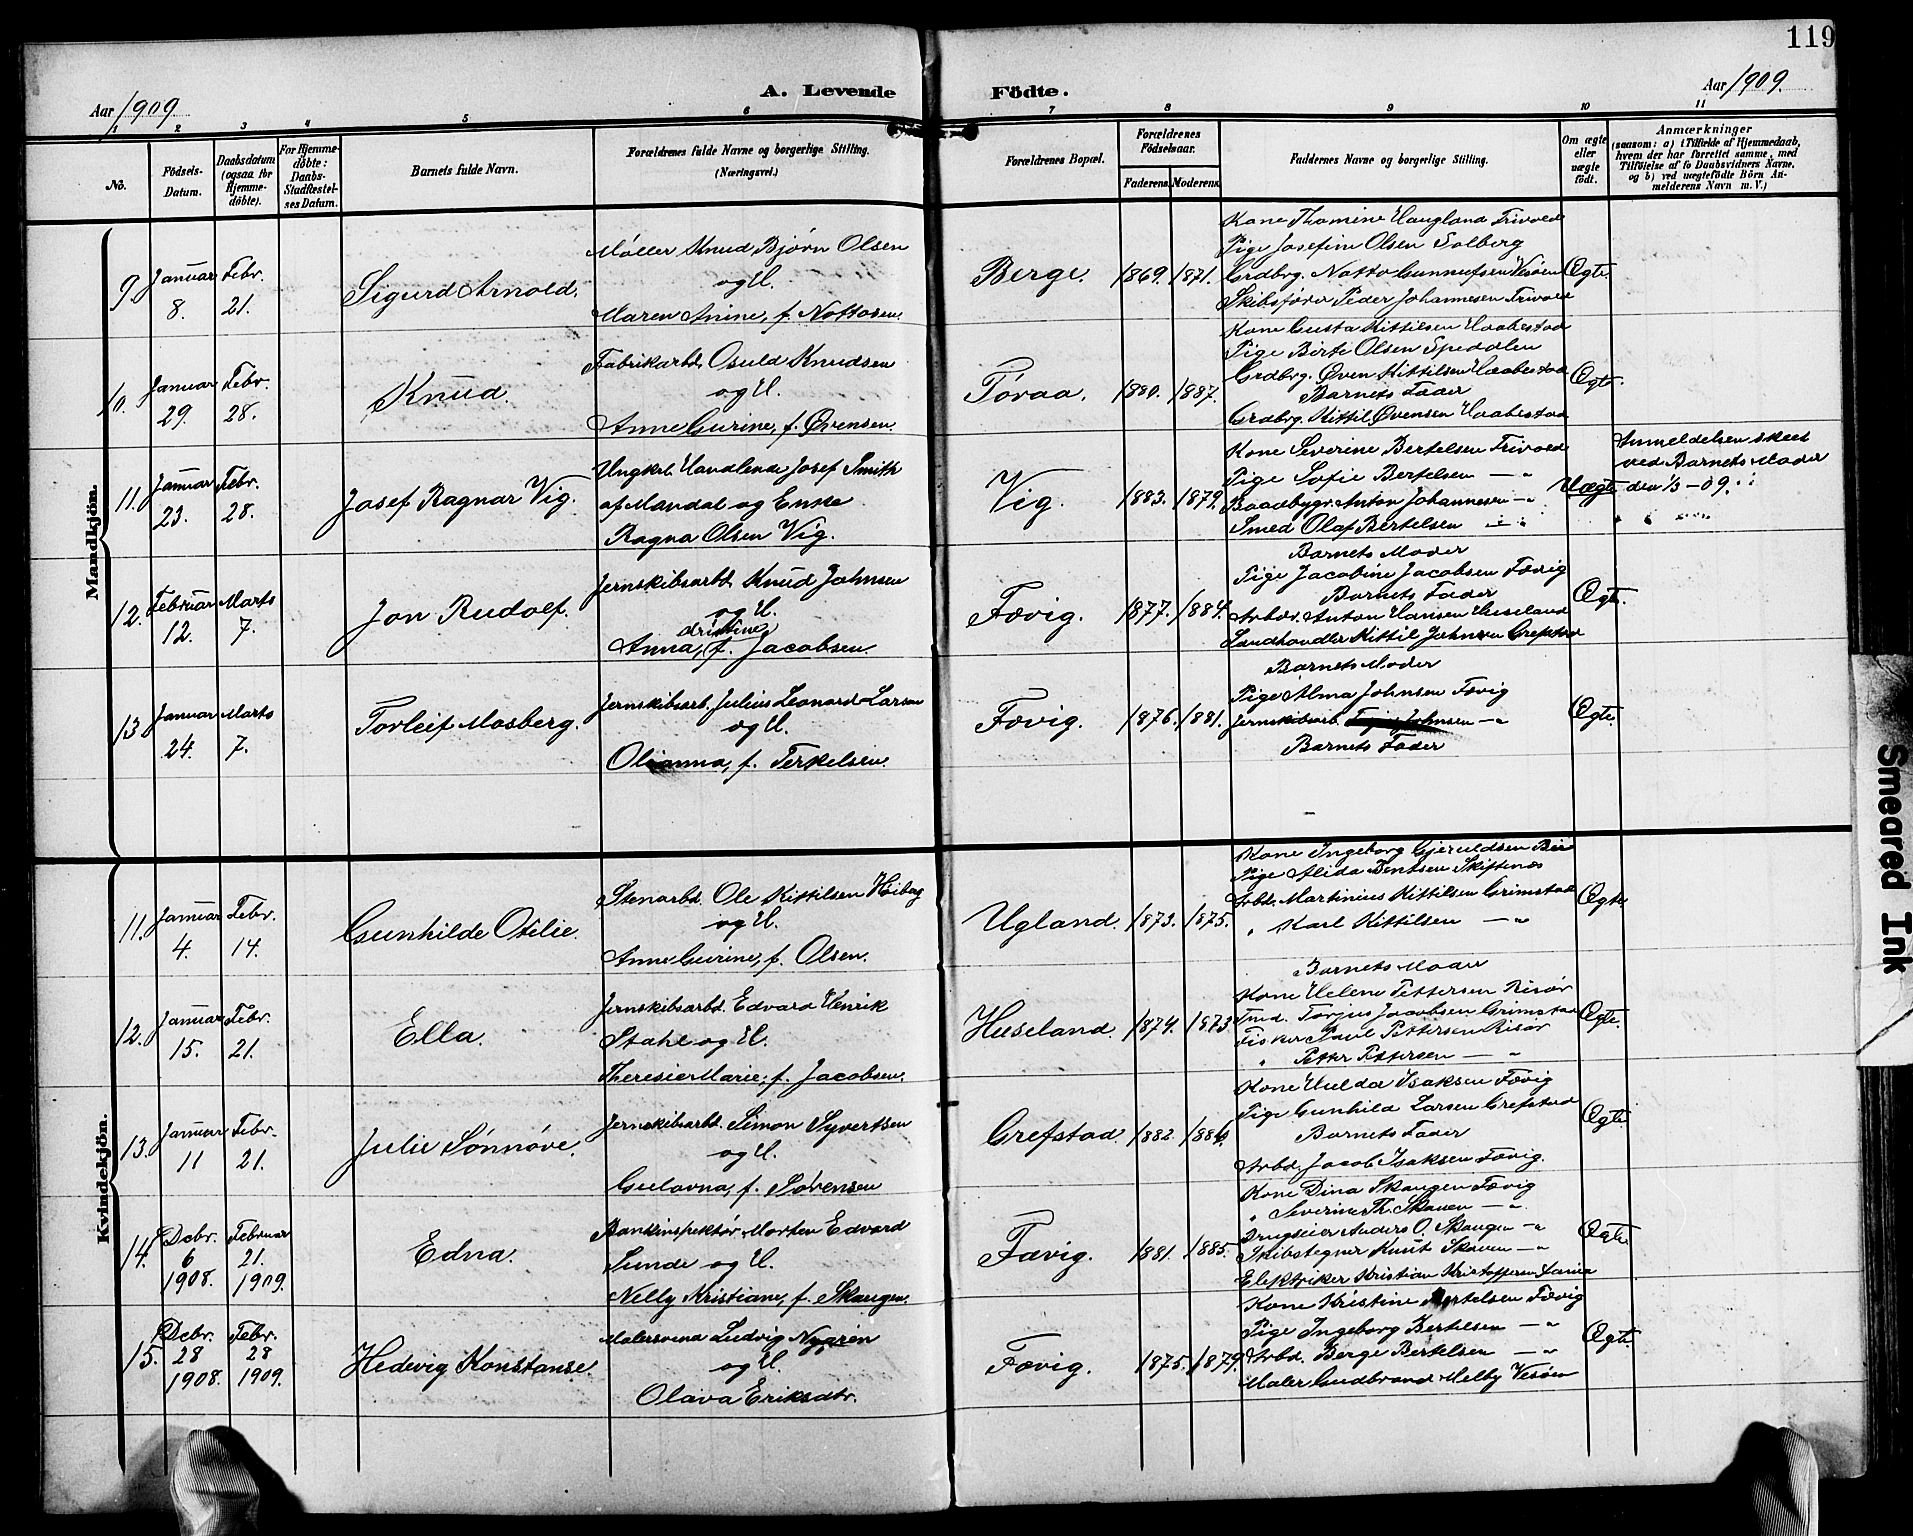 119
Aar 1909.
A. Levende Födte.
Aar 1909.
1 2 3 4 5 6 7 8 9 10 11
No.
Födsels-Datum.
Daabsdatum (ogsaa for Hjemme-döbte).
For Hjemme-döbte: Daabs-Stadfestel-ses Datum.
Barnets fulde Navn.
Forældrenes fulde Navne og borgerlige Stilling. (Næringsvei.)
Forældrenes Bopæl.
Forældrenes Födselsaar.
Faderens. Moderens.
Faddernes Navne og borgerlige Stilling.
Om ægte eller uægte födt.
Anmærkninger
(saasom: a) i Tilfælde af Hjemmedaab, hvem der har forrettet samme, med Tilföielse af to Daabsvidners Navne, og b) ved uægtefödte Börn An-melderens Navn m. V.)
Mandkjön.
9. Januar 8. Febr. 21.
Sigurd Arnold.
Møller Knud Bjørn Olsen
og H.
Maren Anine, f. Nottosen.
Berge. 1869. 1871.
Kone Thomine Haugland Trivold
Pige Josefine Olsen Solberg
Grdbrg. Notto Gunnufsen Vesøen
Skibsfører Peder Johannesen Trivold
Ægte.
10. Januar 29. Febr. 28.
Knud.
Fabrikarbd. Osuld Knudsen
og H.
Anne Gurine, f. Øvensen.
Føraa. 1880. 1887.
Kone Gusta Kittilsen Haabestad
Pige Birte Olsen Speddlen
Grdbrg. Øven Kittilsen Haabestad
Barnets Fader
Grdbrg. Kittil Øvensen Haabestad
Ægte.
11. Januar 23. Febr. 28.
Josef Ragnar Vig.
Ungkrl. Handlende Josef Smith
af Mandal og Enke
Ragna Olsen Vig.
Vig. 1883. 1879.
Kone Severine Bertelsen Trivold
Pige Sofie Bertelsen — „
Baadbygr. Anton Johannesen — „
Smed Olaf Bertelsen — „
Uægte
Anmeldelsen skeet
ved Barnets Moder
den 1/3 - 09.
12. Februar 12. Marts 7.
Jon Rudolf.
Jernskibsarbd. Knud Johnsen
og H.
Anna, f. Jacobsen.
Fævig. 1877. 1884.
Barnets Moder
Pige Jacobine Jacobsen Fævig
Barnets Fader
Arbdr. Anton Hansen Huseland
Landhandler Kittil Johnsen Grefstad
Ægte.
13 Januar 24. Marts 7.
Torleif Mosberg.
Jernskibsarb. Julius Leonard Larsen
og H.
Olianna, f. Terkelsen.
Fævig. 1876. 1881.
Barnets Moder
Pige Alma Johnsen Fævig
Jernskibsarb. Johnsen — „
Barnets Fader
Ægte.
Kvindekjön.
11. Januar 4. Febr. 14.
Gunhilde Otilie.
Stenarbd. Ole Kittilsen Høibag
og H.
Anne Gurine, f. Olsen.
Ugland. 1873. 1875.
Kone Ingeborg Gjeruldsen Bie
Pige Alida Bentsen Skiftenes
Arbd. Martinius Kittilsen Grimstad
„ Karl Kittilsen — „
Ægte
12. Januar 15. Febr. 21.
Ella.
Jernskibsarbd. Edvard Henrik
Stahl og H.
Theresie Marie, f. Jacobsen.
Huseland. 1874. 1873.
Barnets Moder
Kone Helene Pettersen Risør
Tmd. Torjus Jacobsen Grimstad
Fisker Paul Pettersen Risør
„ Petter Pettersen — „
Ægte.
13. Januar 11 Febr. 21.
Julie Sønnøve.
Jernskibsarbd. Simon Syvertsen
og H.
Gulovna, f. Sørensen
Grefstad. 1882. 1886.
Kone Hulda Isaksen Fævig
Pige Gunhild Larsen Grefstad
Barnets Fader
Arbd. Jacob Isaksen Fævig.
Ægte
14. Debr. 6 1908. Februar 21. 1909.
Edna.
Bankinspektør Morten Edvard
Sunde og H.
Nelly Kristiane, f. Skaugen.
Fævig. 1881. 1885.
Kone Dina Skaugen Fævig
„ Severine Th. Skauen — „
Brugseier Anders O. Skaugen — „
Skibstegner Knut Skauen — „
Elektriker Kristian Kristoffersen
Ægte.
15. Debr. 28 1908. Febr. 28 1909.
Hedevig Konstanse.
Malersvend Ludvig Nygren
og H.
Olava Eriksdtr.
Fævig. 1875. 1879.
Kone Kristine Bertelsen Fævig
Pige Ingeborg Bertelsen — „
Arbd. Berge Bertelsen — „
Maler Gudbrand Melby Vesøen
Ægte.
Smeared Ink